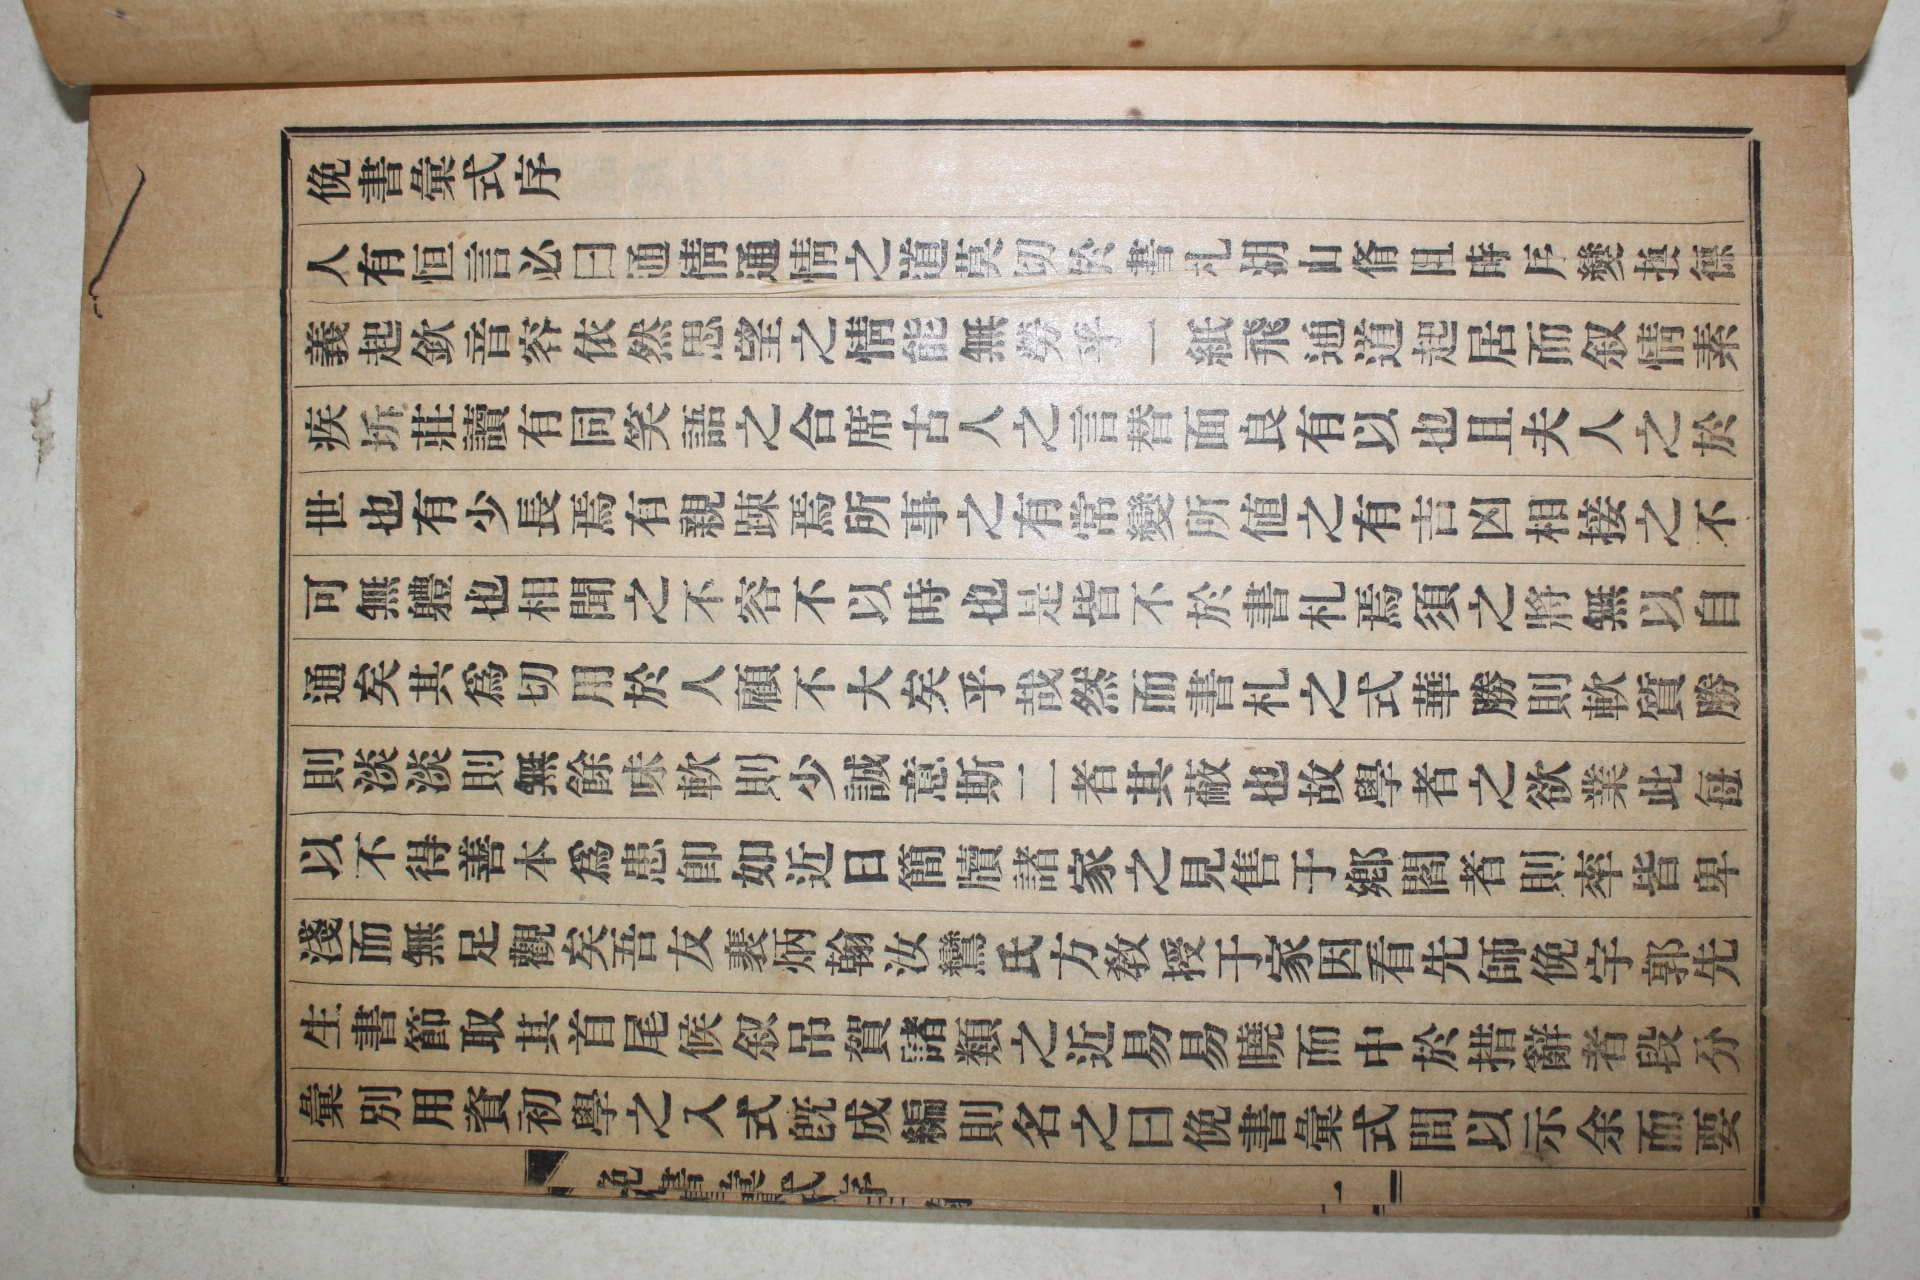 俛書彙式序
人有恒言必曰通情通情之道莫切於書札湖山脩阻時序變換德
義起欽音容依然思望之情能無勞乎一紙飛通道起居而叙情素
疾坼莊讀有同笑語之合席古人之言替面良有以也且夫人之於
世也有少長焉有親踈焉所事之有常變所値之有吉凶相接之不
可無軆也相聞之不容不以時也是皆不於書札焉須之將無以自
通矣其爲切用於人顧不大矣乎哉然而書札之式華勝則軟質勝
則淡淡則無餘味軟則少誠意斯二者其蔽也故學者之欲業此每
以不得善本爲患卽如近日簡牘諸家之見售于鄕閤者則率皆卑
淺而無足觀矣吾友裵炳翰汝鸞氏方敎授于家因看先師俛宇郭先
生書節取其首尾候叙吊賀諸類之近易易曉而中於措辭者段分
彙別用資初學之入式旣成編則名之曰俛書彙式間以示余而要
俛書彙式序
一